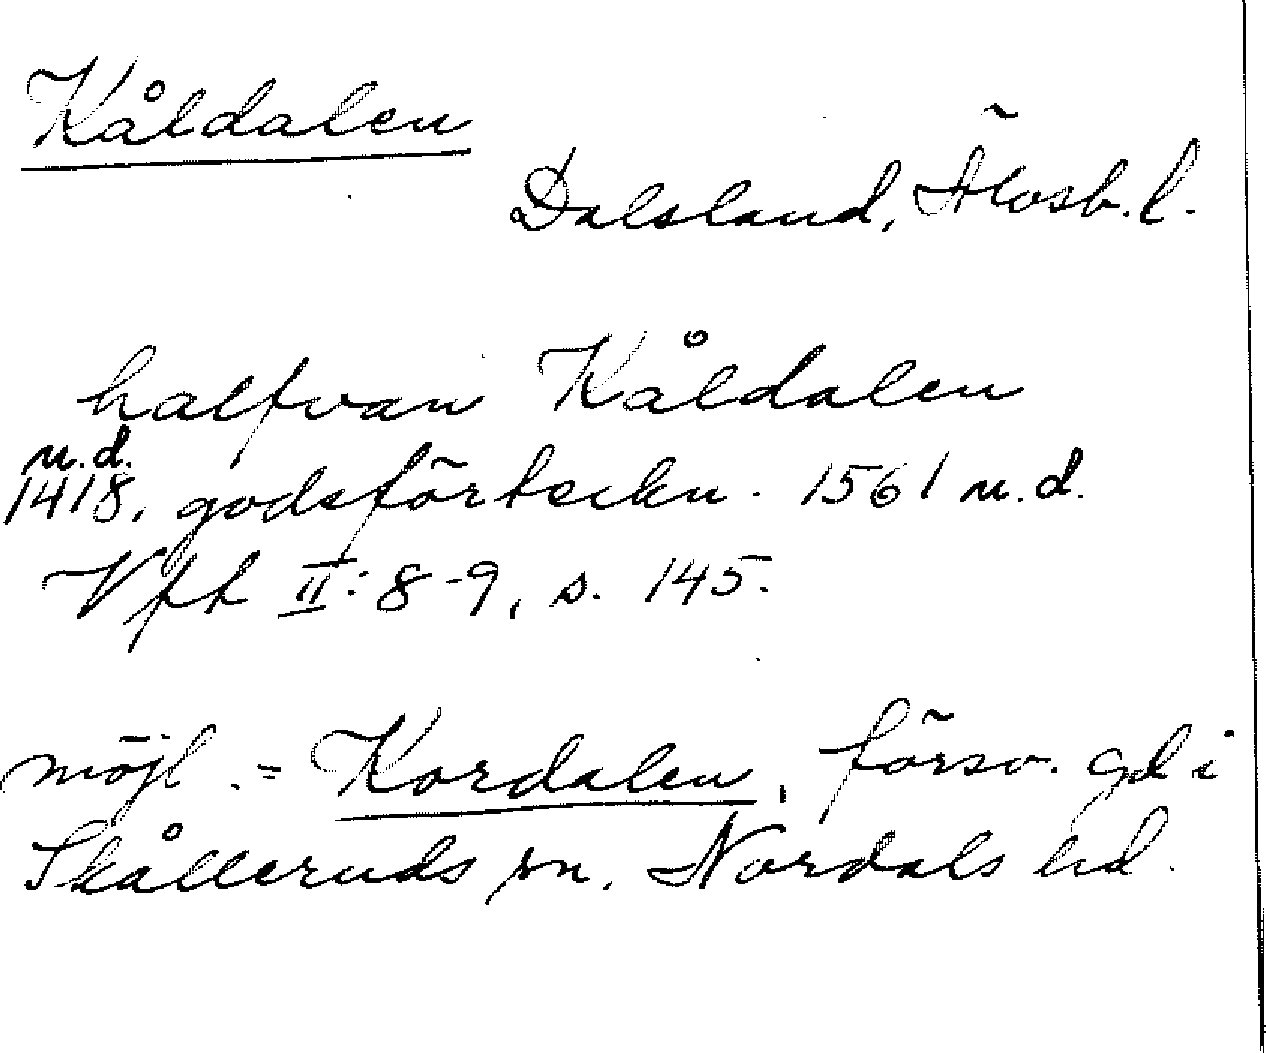 Kåldalen
Dalsland, Älvsb. l.
halfvan Kåldalen
u.d.
1418, godsförteckn. 1561 u.d.
Vfh II: 8-9, s. 145.
möjl. = Kordalen, försv. gd i
Skålleruds sn, Nordals hd.